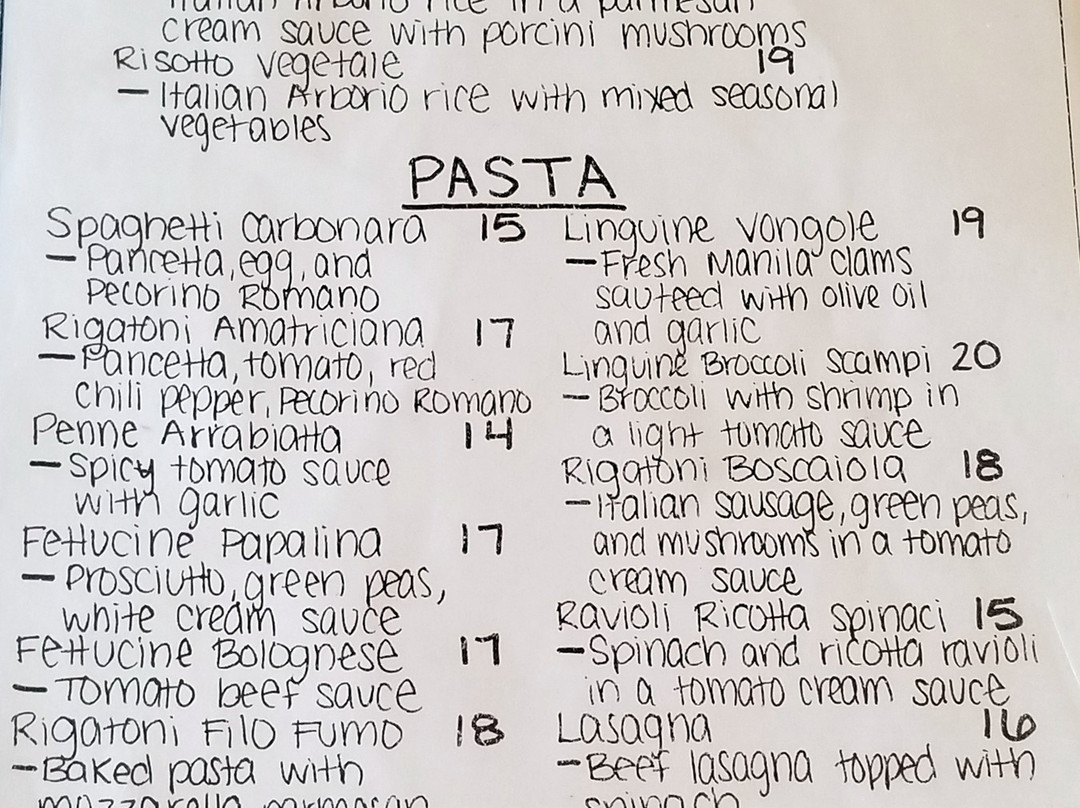 Italian Arborio rice in a parmesan
cream sauce with porcini mushrooms
Risotto vegetale 19
- Italian Arborio rice with mixed seasonal
vegetables
PASTA
Spaghetti Carbonara 15
- Pancetta, egg, and
Pecorino Romano
Rigatoni Amatriciana 17
- Pancetta, tomato, red
chili pepper, Pecorino Romano
Penne Arrabiatta 14
- Spicy tomato sauce
with garlic
Fettucine Papalina 17
- Prosciutto, green peas,
white cream sauce
Fettucine Bolognese 17
- Tomato beef sauce
Rigatoni Filo Fumo 18
- Baked pasta with
mozzarella, parmesan
Linguine vongole 19
- Fresh Manila clams
sauteed with olive oil
and garlic
Linguine Broccoli scampi 20
- Broccoli with shrimp in
a light tomato sauce
Rigatoni Boscaiola 18
- Italian sausage, green peas,
and mushrooms in a tomato
cream sauce
Ravioli Ricotta spinaci 15
- Spinach and ricotta ravioli
in a tomato cream sauce
Lasagna 16
- Beef lasagna topped with
spinach